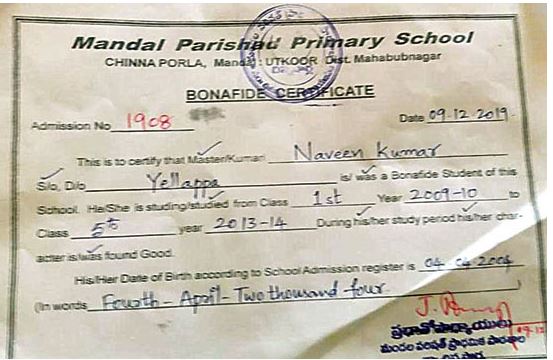 Mandal Parishad Primary School
CHINNA PORLA, Mandal: UTKOOR Dist. Mahabubnagar
BONAFIDE CERTIFICATE
Admission No 1908 Date 09-12-2019
This is to certify that Master/Kumari Naveen Kumar
S/o, D/o Yellappa is/was a Bonafide Student of this
School. He/She is studing/studied from Class 1st Year 2009-10 to
Class 5th year 2013-14 During his/her study period his/her char-
acter is/was found Good.
His/Her Date of Birth according to School Admission register is 04-04-2004
(In words Fourth - April - Two thousand four )
ప్రధానోపాధ్యాయులు
మండల పరిషత్ ప్రాథమిక పాఠశాల